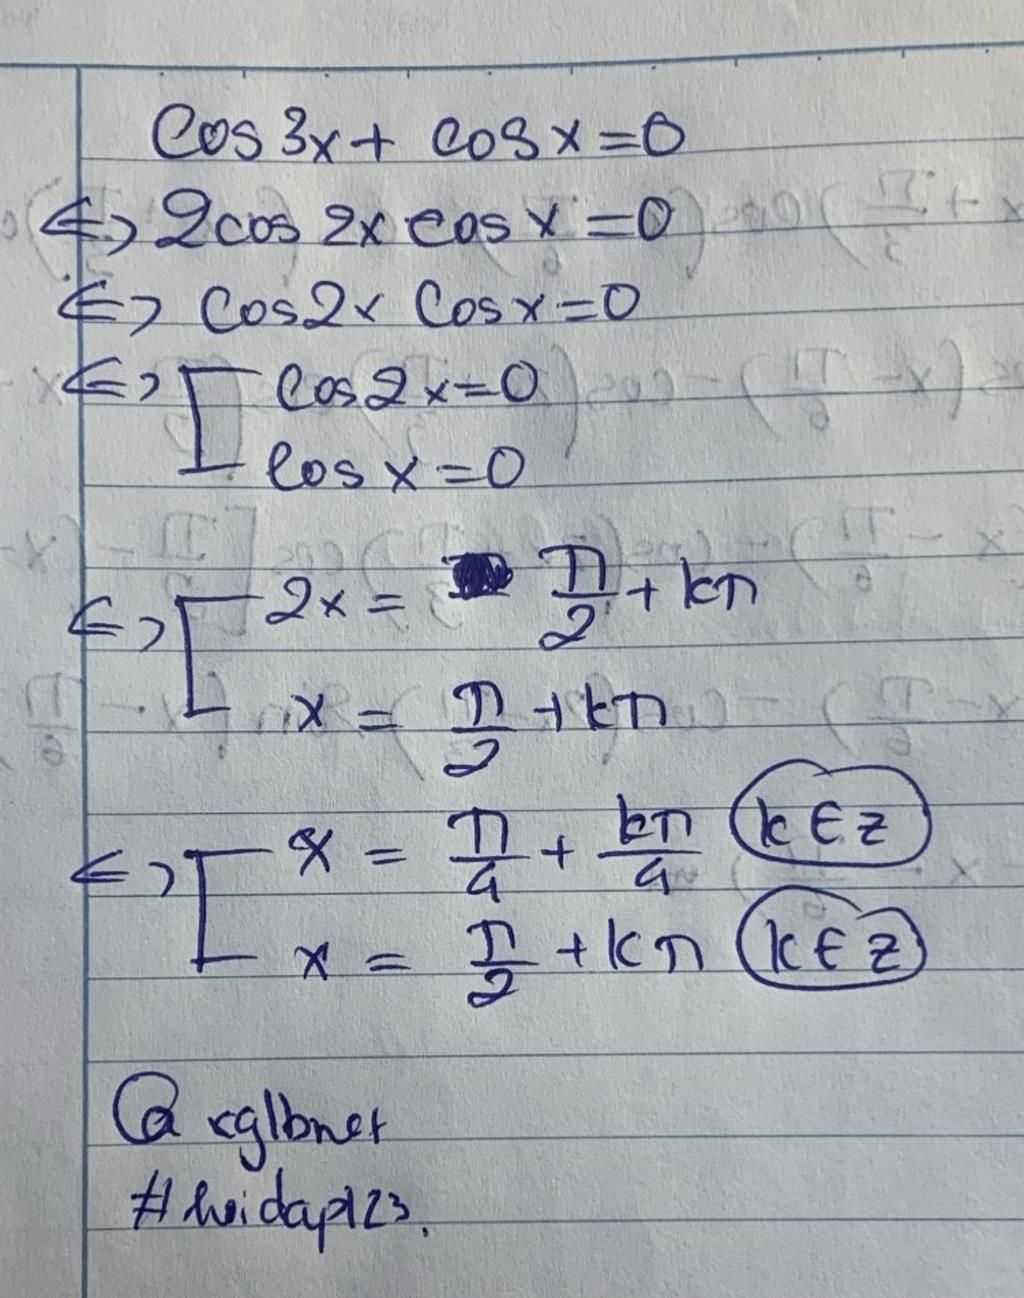 cos 3x + cos x = 0
⇔ 2cos 2x cos x = 0
⇔ cos 2x cos x = 0
⇔ [ cos 2x = 0
cos x = 0
⇔ [ 2x = π/2 + kπ
x = π/2 + kπ
⇔ [ x = π/4 + kπ/4 (k ∈ Z)
x = π/2 + kπ (k ∈ Z)